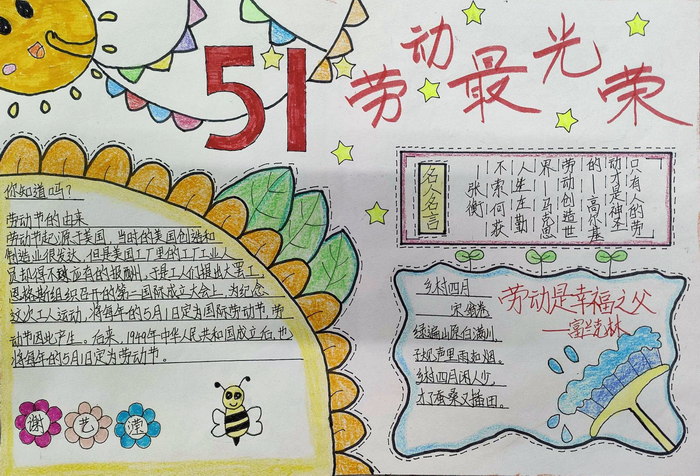 51
劳动最光荣
你知道吗？
劳动节的由来
劳动节起源于美国，当时的美国创造和
制造业很发达，但是美国工厂里的工厂工业人
员却得不到应有的报酬，于是工人们提出大罢工，
恩格斯组织召开的第二国际成立大会上，为纪念
这次工人运动，将每年的5月1日定为国际劳动节，劳
动节因此产生。后来，1949年中华人民共和国成立后，也
将每年的5月1日定为劳动节。
谢艺滢
名人名言
只有人的劳
动才是神圣
的——高尔基
劳动创造世
界——马克思
人生在勤
不索何获
——张衡
乡村四月
宋 翁卷
绿遍山原白满川，
子规声里雨如烟。
乡村四月闲人少，
才了蚕桑又插田。
劳动是幸福之父
——富兰克林